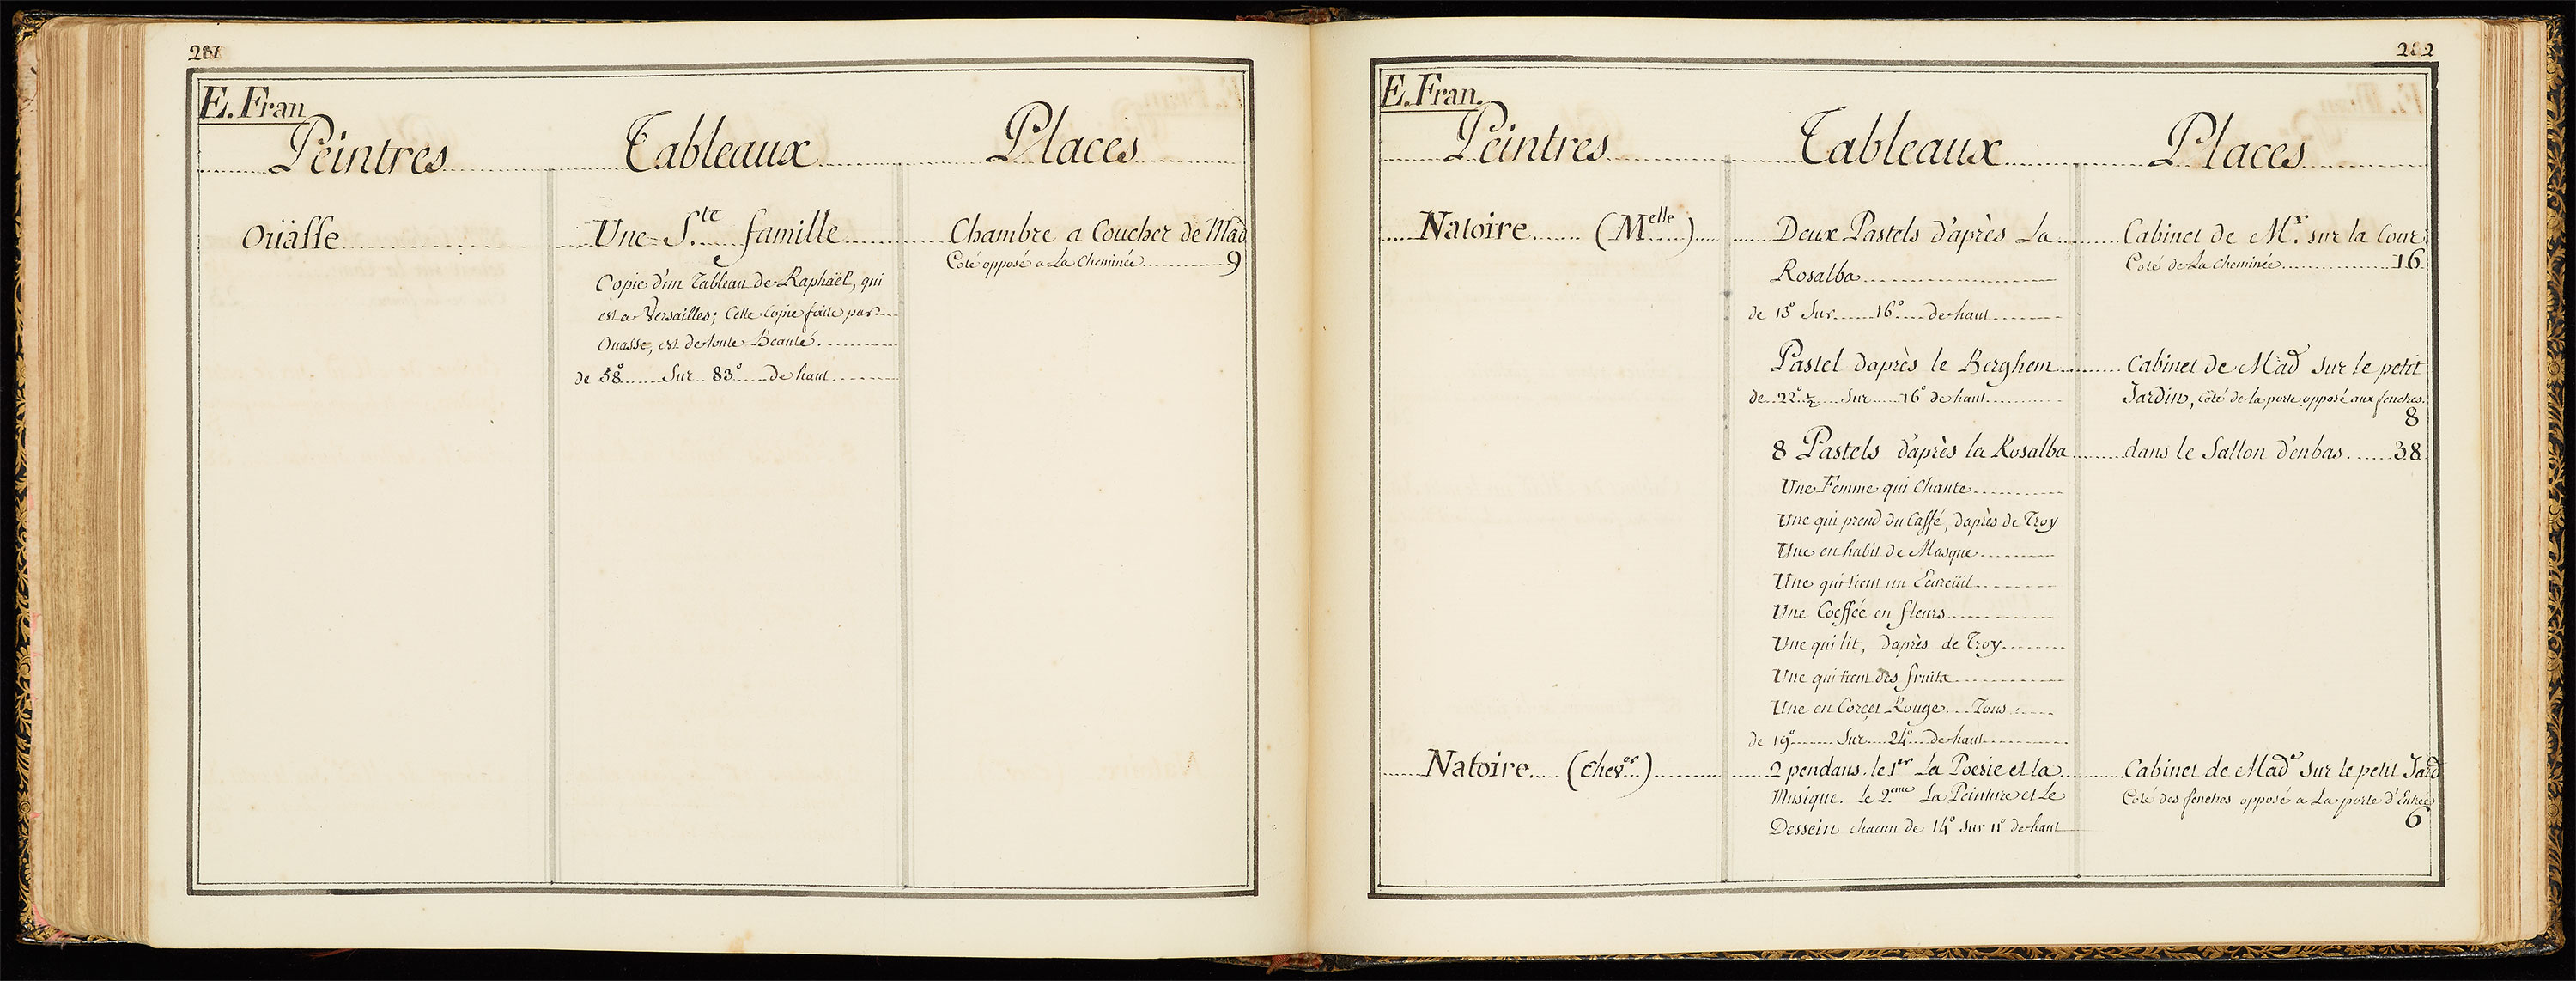 281
E. Fran
Peintres Tableaux Places
Oüasse Une S.te famille Chambre a Coucher de Mad
Coté opposé a La Cheminée 9
Copie d'un Tableau de Raphaël, qui
est a Versailles; Cette Copie faite par
Ouasse, est de toute Beauté.
de 58° Sur 83° De haut
282
E. Fran.
Peintres Tableaux Places
Natoire (Melle) Deux Pastels d'après La Cabinet de M.r sur la Cour
Rosalba Coté de La Cheminée 16
de 13° Sur 16° de haut
Pastel d'après le Berghem Cabinet de Mad Sur le petit
de 22° ½ Sur 16° de haut Jardin, Coté de la porte opposé aux fenetres.
8
8 Pastels d'après la Rosalba dans le Sallon d'enbas 38
Une Femme qui Chante
Une qui prend du Caffé, d'après de Troy
Une en habit de Masque
Une qui tient un Ecureüil
Une Coeffée en fleurs
Une qui lit, d'après de Troy
Une qui tient des fruits
Une en Corcet Rouge Tous
de 19° Sur 24° de haut
Natoire (Chever) 2 pendans. le 1er La Poesie et la Cabinet de Made Sur le petit Jard
Musique. Le 2.eme La Peinture et Le Coté des fenetres opposé a La porte d'Entrée
Dessein chacun de 14° Sur 11° de haut 6